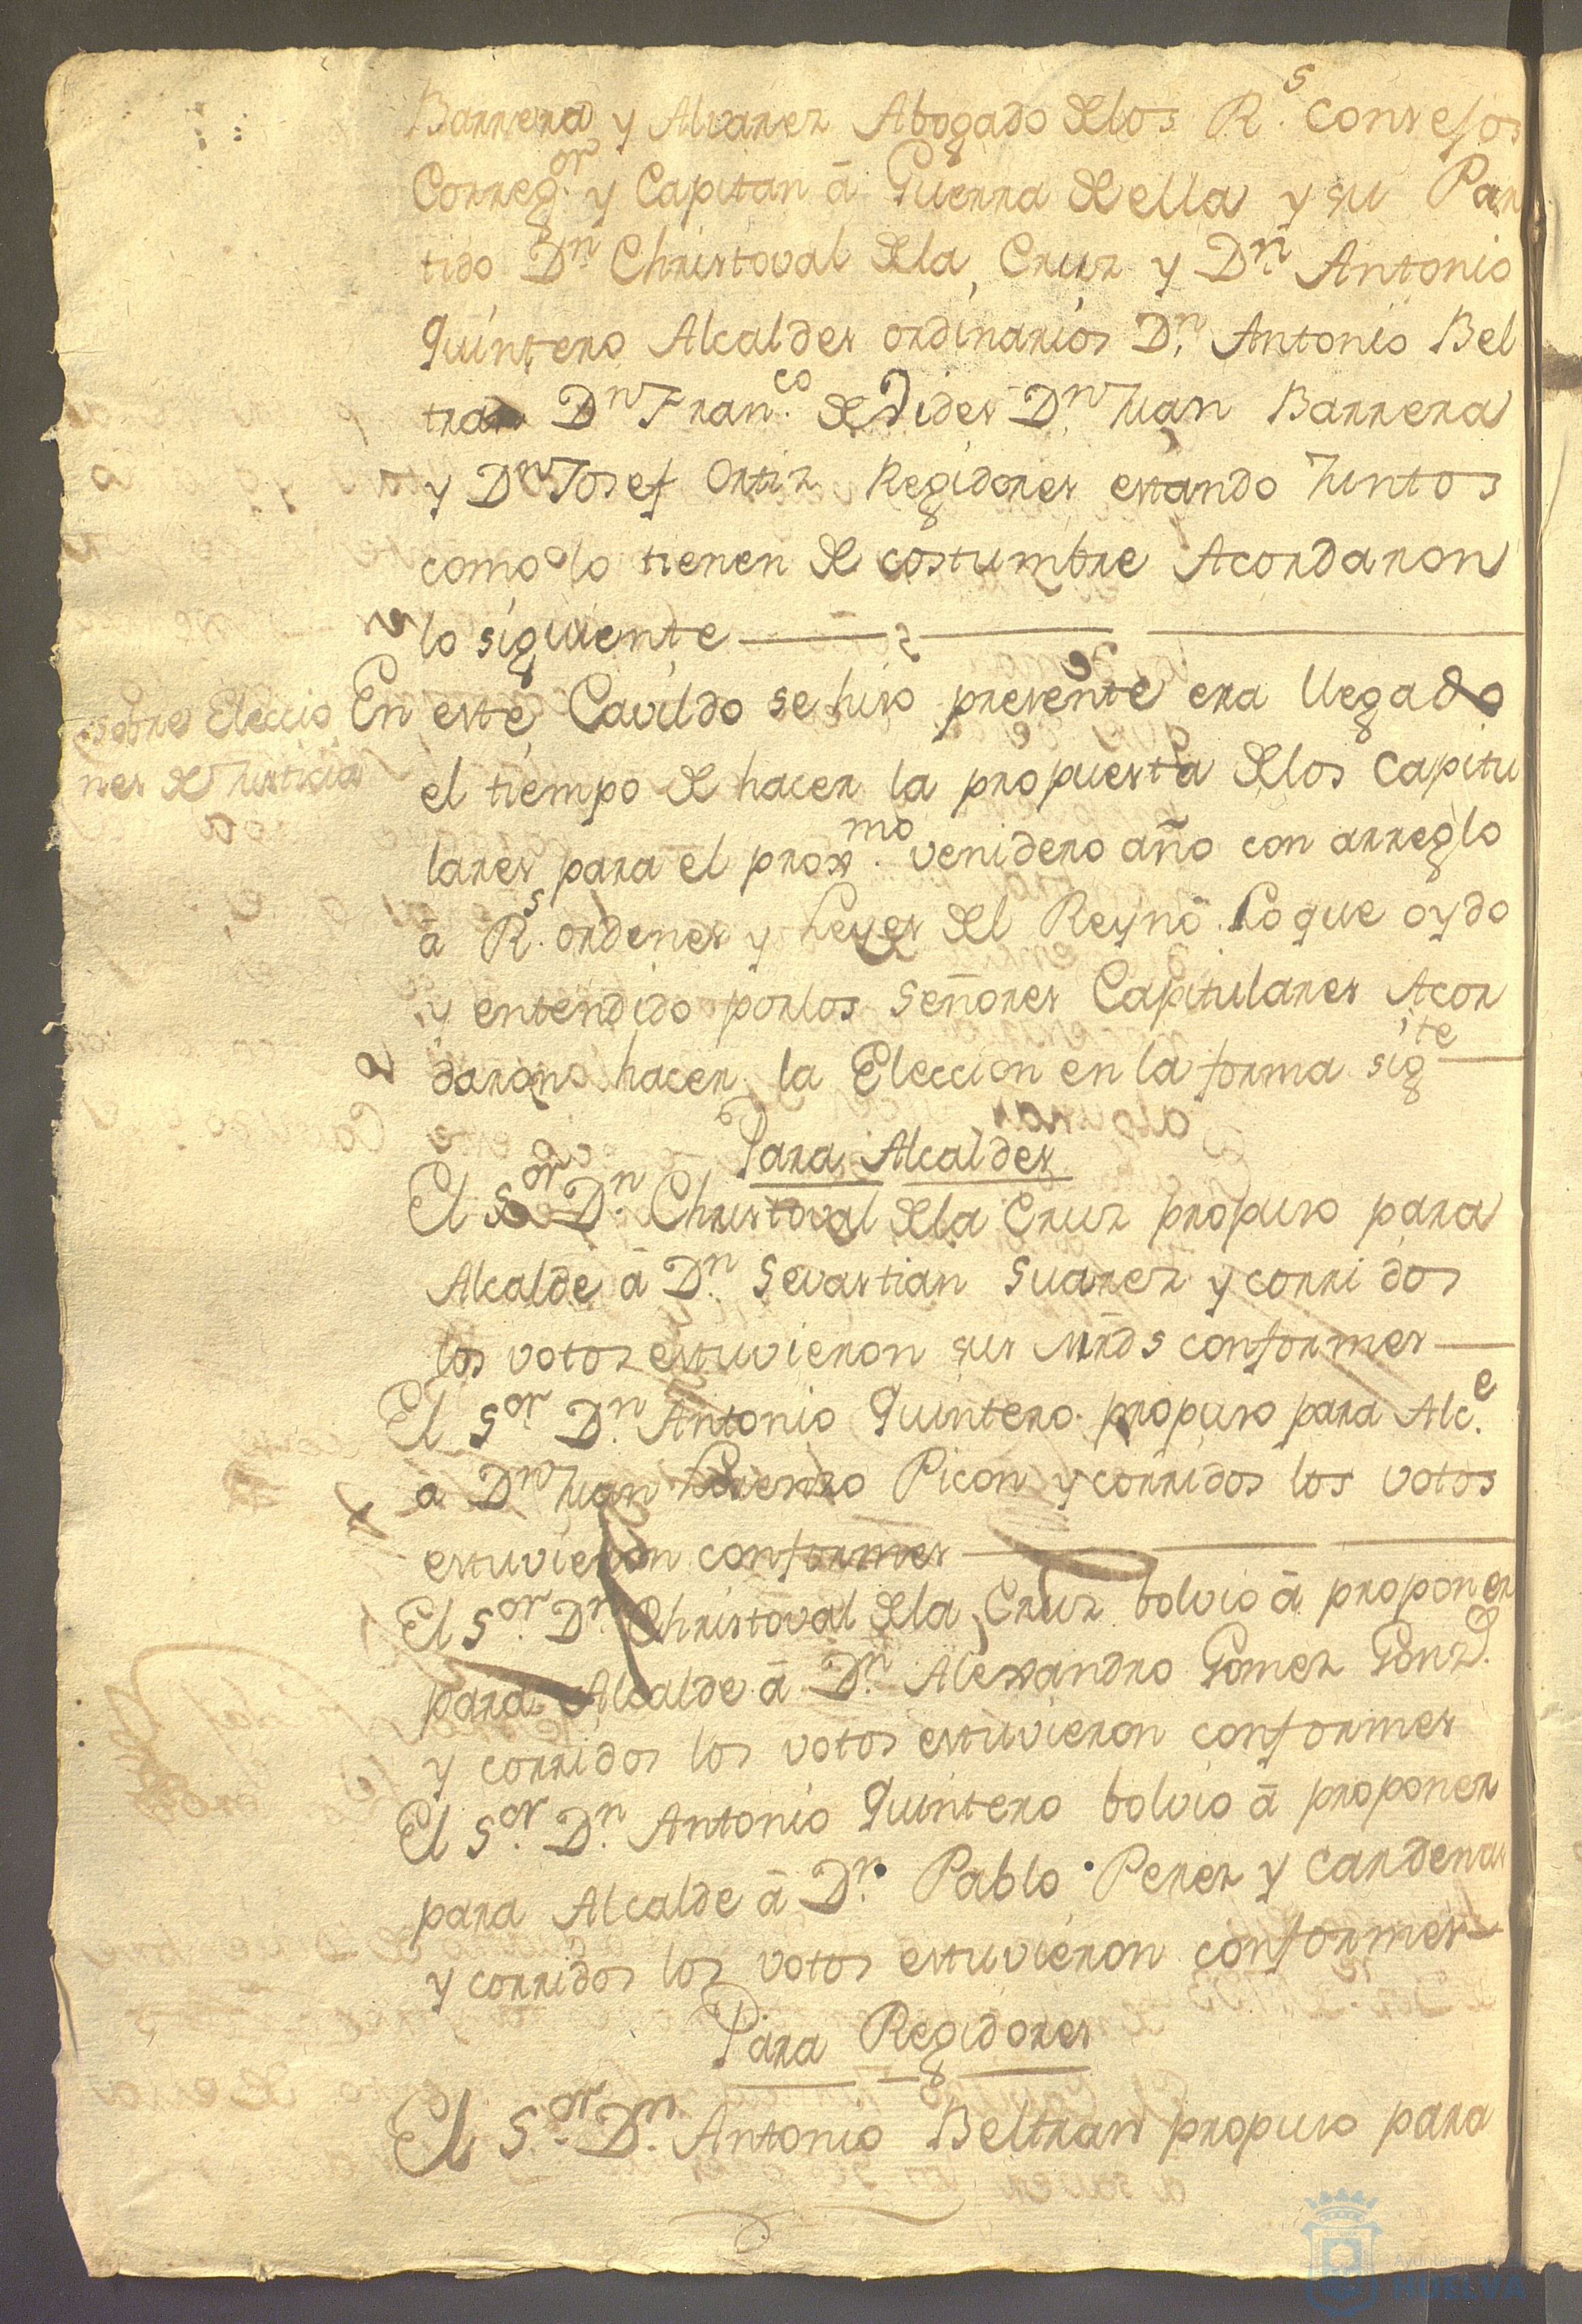 Barrera y Alvarez Abogado delos R.s Consejos
Correg.or y Capitan â Guerra de ella y su Par
tido D.n Christoval dela Cruz y D.n Antonio
Quintero Alcaldes ordinarios D.n Antonio Bel
tran D.n Fran.co de Dides D.n Juan Barrera
y D.n Josef Ortiz Regidores estando Juntos
como lo tienen de costumbre Acordaron
lo siguiente
sobre Eleccio
nes de Justicias
En este Cavildo se hiso presente era llegado
el tiempo de hacer la propuesta delos Capitu
lares para el prox.mo venidero año con arreglo
â R.s ordenes y Leyes del Reyno. Lo que oydo
y entendido porlos Señores Capitulares Acor
daron hacer la Eleccion en la forma sig.te
Para Alcaldes
El S.or D.n Christoval dela Cruz propuso para
Alcalde â D.n Sevastian Suarez y corridos
los votos estuvieron sus Mrds conformes
El S.or D.n Antonio Quintero propuso para Alc.e
a D.n Juan Picon y corridos los votos
estuvieron conformes
El S.or D.n Christoval dela Cruz bolvio â proponer
para Alcalde â D.n Alexandro Gomez Gonz.
y corridos los votos estuvieron conformes
El S.or D.n Antonio Quintero bolvio â proponer
para Alcalde â D.n Pablo Perez y Cardenas
y corridos los votos estuvieron conformes
Para Regidores
El S.or D.n Antonio Beltran propuso para
Ayuntamiento
HUELVA